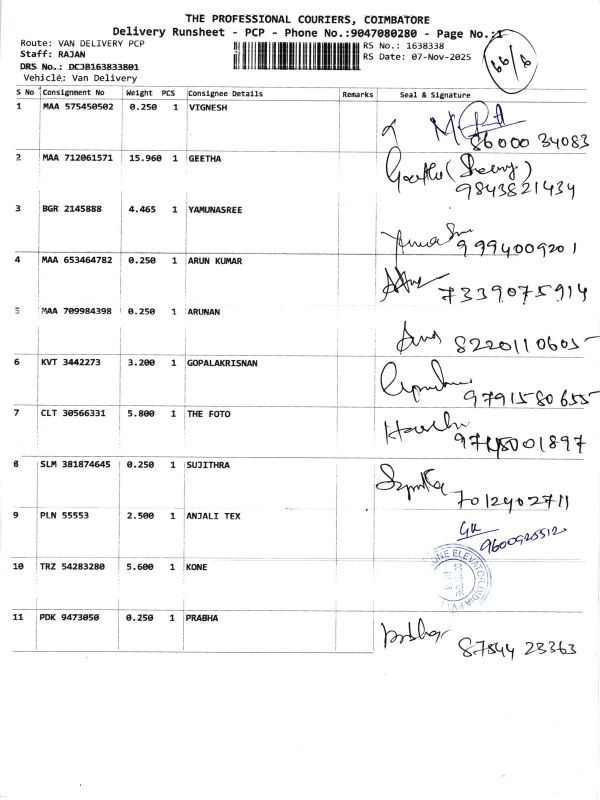 THE PROFESSIONAL COURIERS, COIMBATORE
Delivery Runsheet - PCP - Phone No.:9047080280 - Page No.:1
Route: VAN DELIVERY PCP RS No.: 1638338
Staff: RAJAN RS Date: 07-Nov-2025
DRS No.: DCJB163833801
Vehicle: Van Delivery
66/8
S No Consignment No Weight PCS Consignee Details Remarks Seal & Signature
1 MAA 575450502 0.250 1 VIGNESH
86000 34083
2 MAA 712061571 15.960 1 GEETHA
Geetha
9843821434
3 BGR 2145888 4.465 1 YAMUNASREE
9994009201
4 MAA 653464782 0.250 1 ARUN KUMAR
7339075914
5 MAA 709984398 0.250 1 ARUNAN
8220110605
6 KVT 3442273 3.200 1 GOPALAKRISNAN
9791580655
7 CLT 30566331 5.800 1 THE FOTO
8 SLM 381874645 0.250 1 SUJITHRA
7012902711
9 PLN 55553 2.500 1 ANJALI TEX
10 TRZ 54283280 5.600 1 KONE
ONE ELEVATOR INDIA PVT
11 PDK 9473050 0.250 1 PRABHA
87544 23363